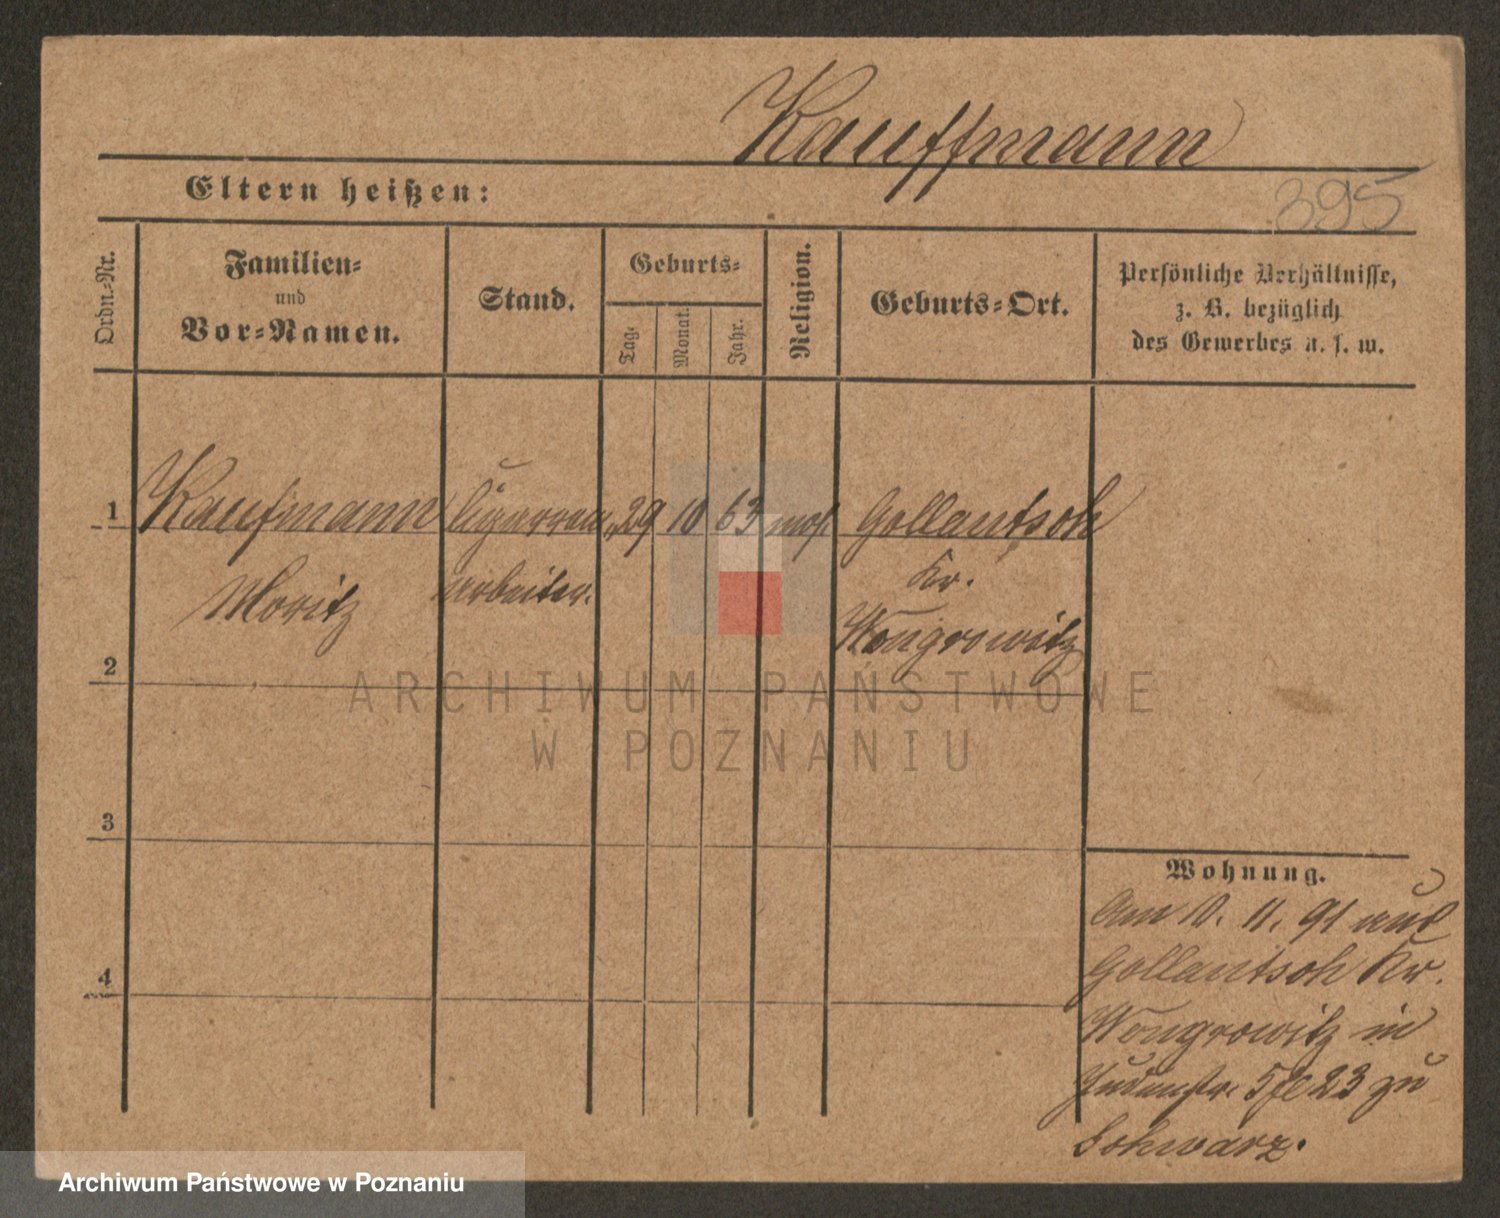 Kauffmann
Eltern heißen:
395
Ordn.-Nr.
Familien-
und
Vor-Namen.
Stand.
Geburts-
Tag.
Monat.
Jahr.
Religion.
Geburts-Ort.
Persönliche Verhältnisse,
z. B. bezüglich
des Gewerbes u. s. w.
1 Kaufmann Cigarren 29 10 63 mos. Gollantsch
Moritz arbeiter. Kr.
Wongrowitz
2
3
4
Wohnung.
Am 10. 11. 91 aus
Gollantsch Kr.
Wongrowitz in
Judenstr. 23 zu
Schwarz.
ARCHIWUM PAŃSTWOWE
W POZNANIU
Archiwum Państwowe w Poznaniu